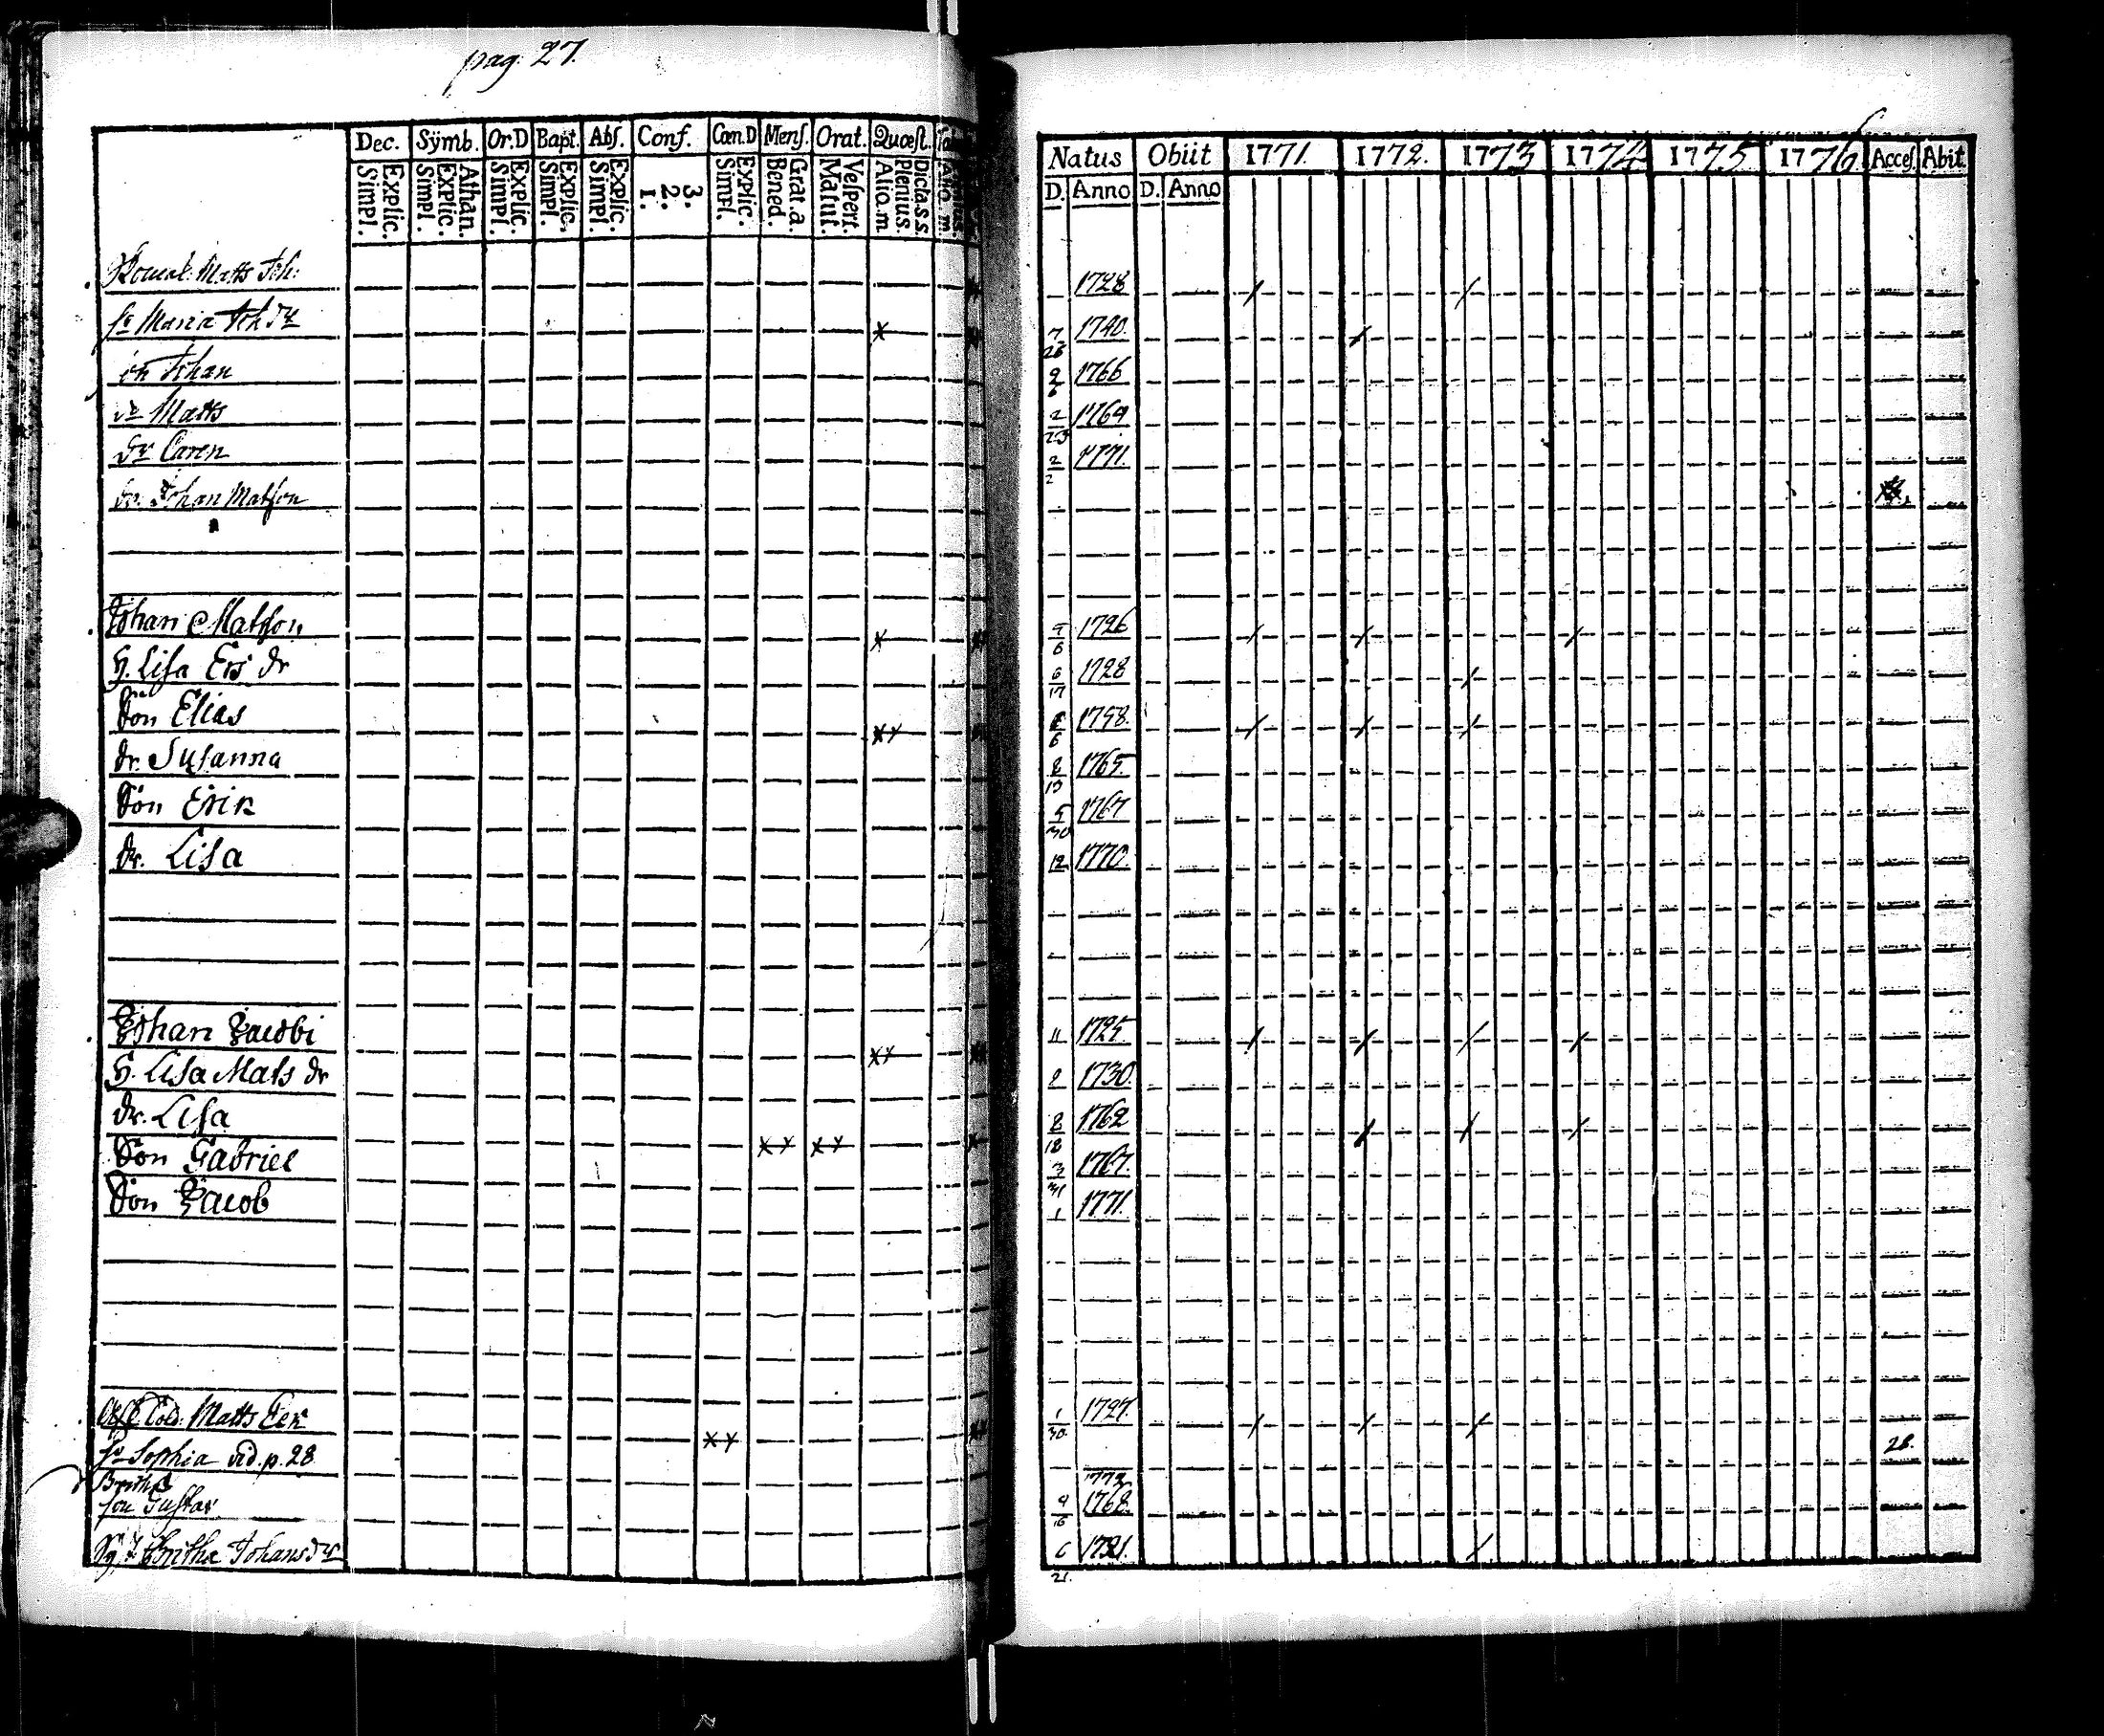 pag. 27.
Dec. Sÿmb. Or.D Bapt. Abſ. Conf. Cœn.D Menſ. Orat. Quœſt.
Explic. Simpl. Athan. Explic. Simpl. Explic. Simpl. Explic. Simpl. Explic. Simpl. 3. 2. 1. Explic. Simpl. Grat.a. Bened. Veſpert. Matut. Dicta.s.s. Plenius. Alio.m.
Matts Joh:
Maria Joh dr
Johan
Matts
dr Caren
Johan Matſon
Johan Matſson
H. Liſa Ers dr
Son Elias
dr. Suſanna
Son Erik
dr. Liſa
Johan Jacobi
H. Liſa Mats dr
dr. Liſa
Son Gabriel
Son Jacob
Matts Eer
Sophia vid. p. 28
Britha
ſon Guſtav
Britha Johansdr
Natus Obiit 1771. 1772. 1773 1774 1775 1776. Acceſ. Abit.
D. Anno D. Anno
1728
7/26 1740.
9/6 1766
2/23 1769
2/2 1771.
9/6 1726
6/17 1728
6 1758.
8/13 1765.
5/30 1767
12 1770.
11 1725.
2 1730.
8/18 1762
3/31 1767.
1 1771.
1/30 1727.
28.
1772
9/16 1768.
6/21. 1721.